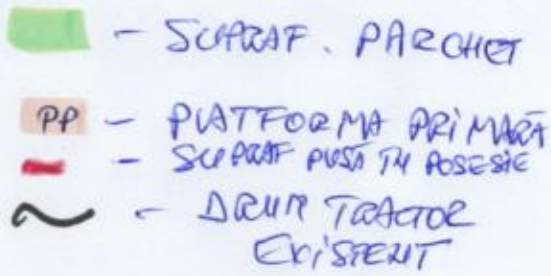 - SUPRAF. PARCHET
PP - PLATFORMA PRIMARĂ
- SUPRAF PUSĂ ÎN POSESIE
- DRUM TRACTOR
EXISTENT